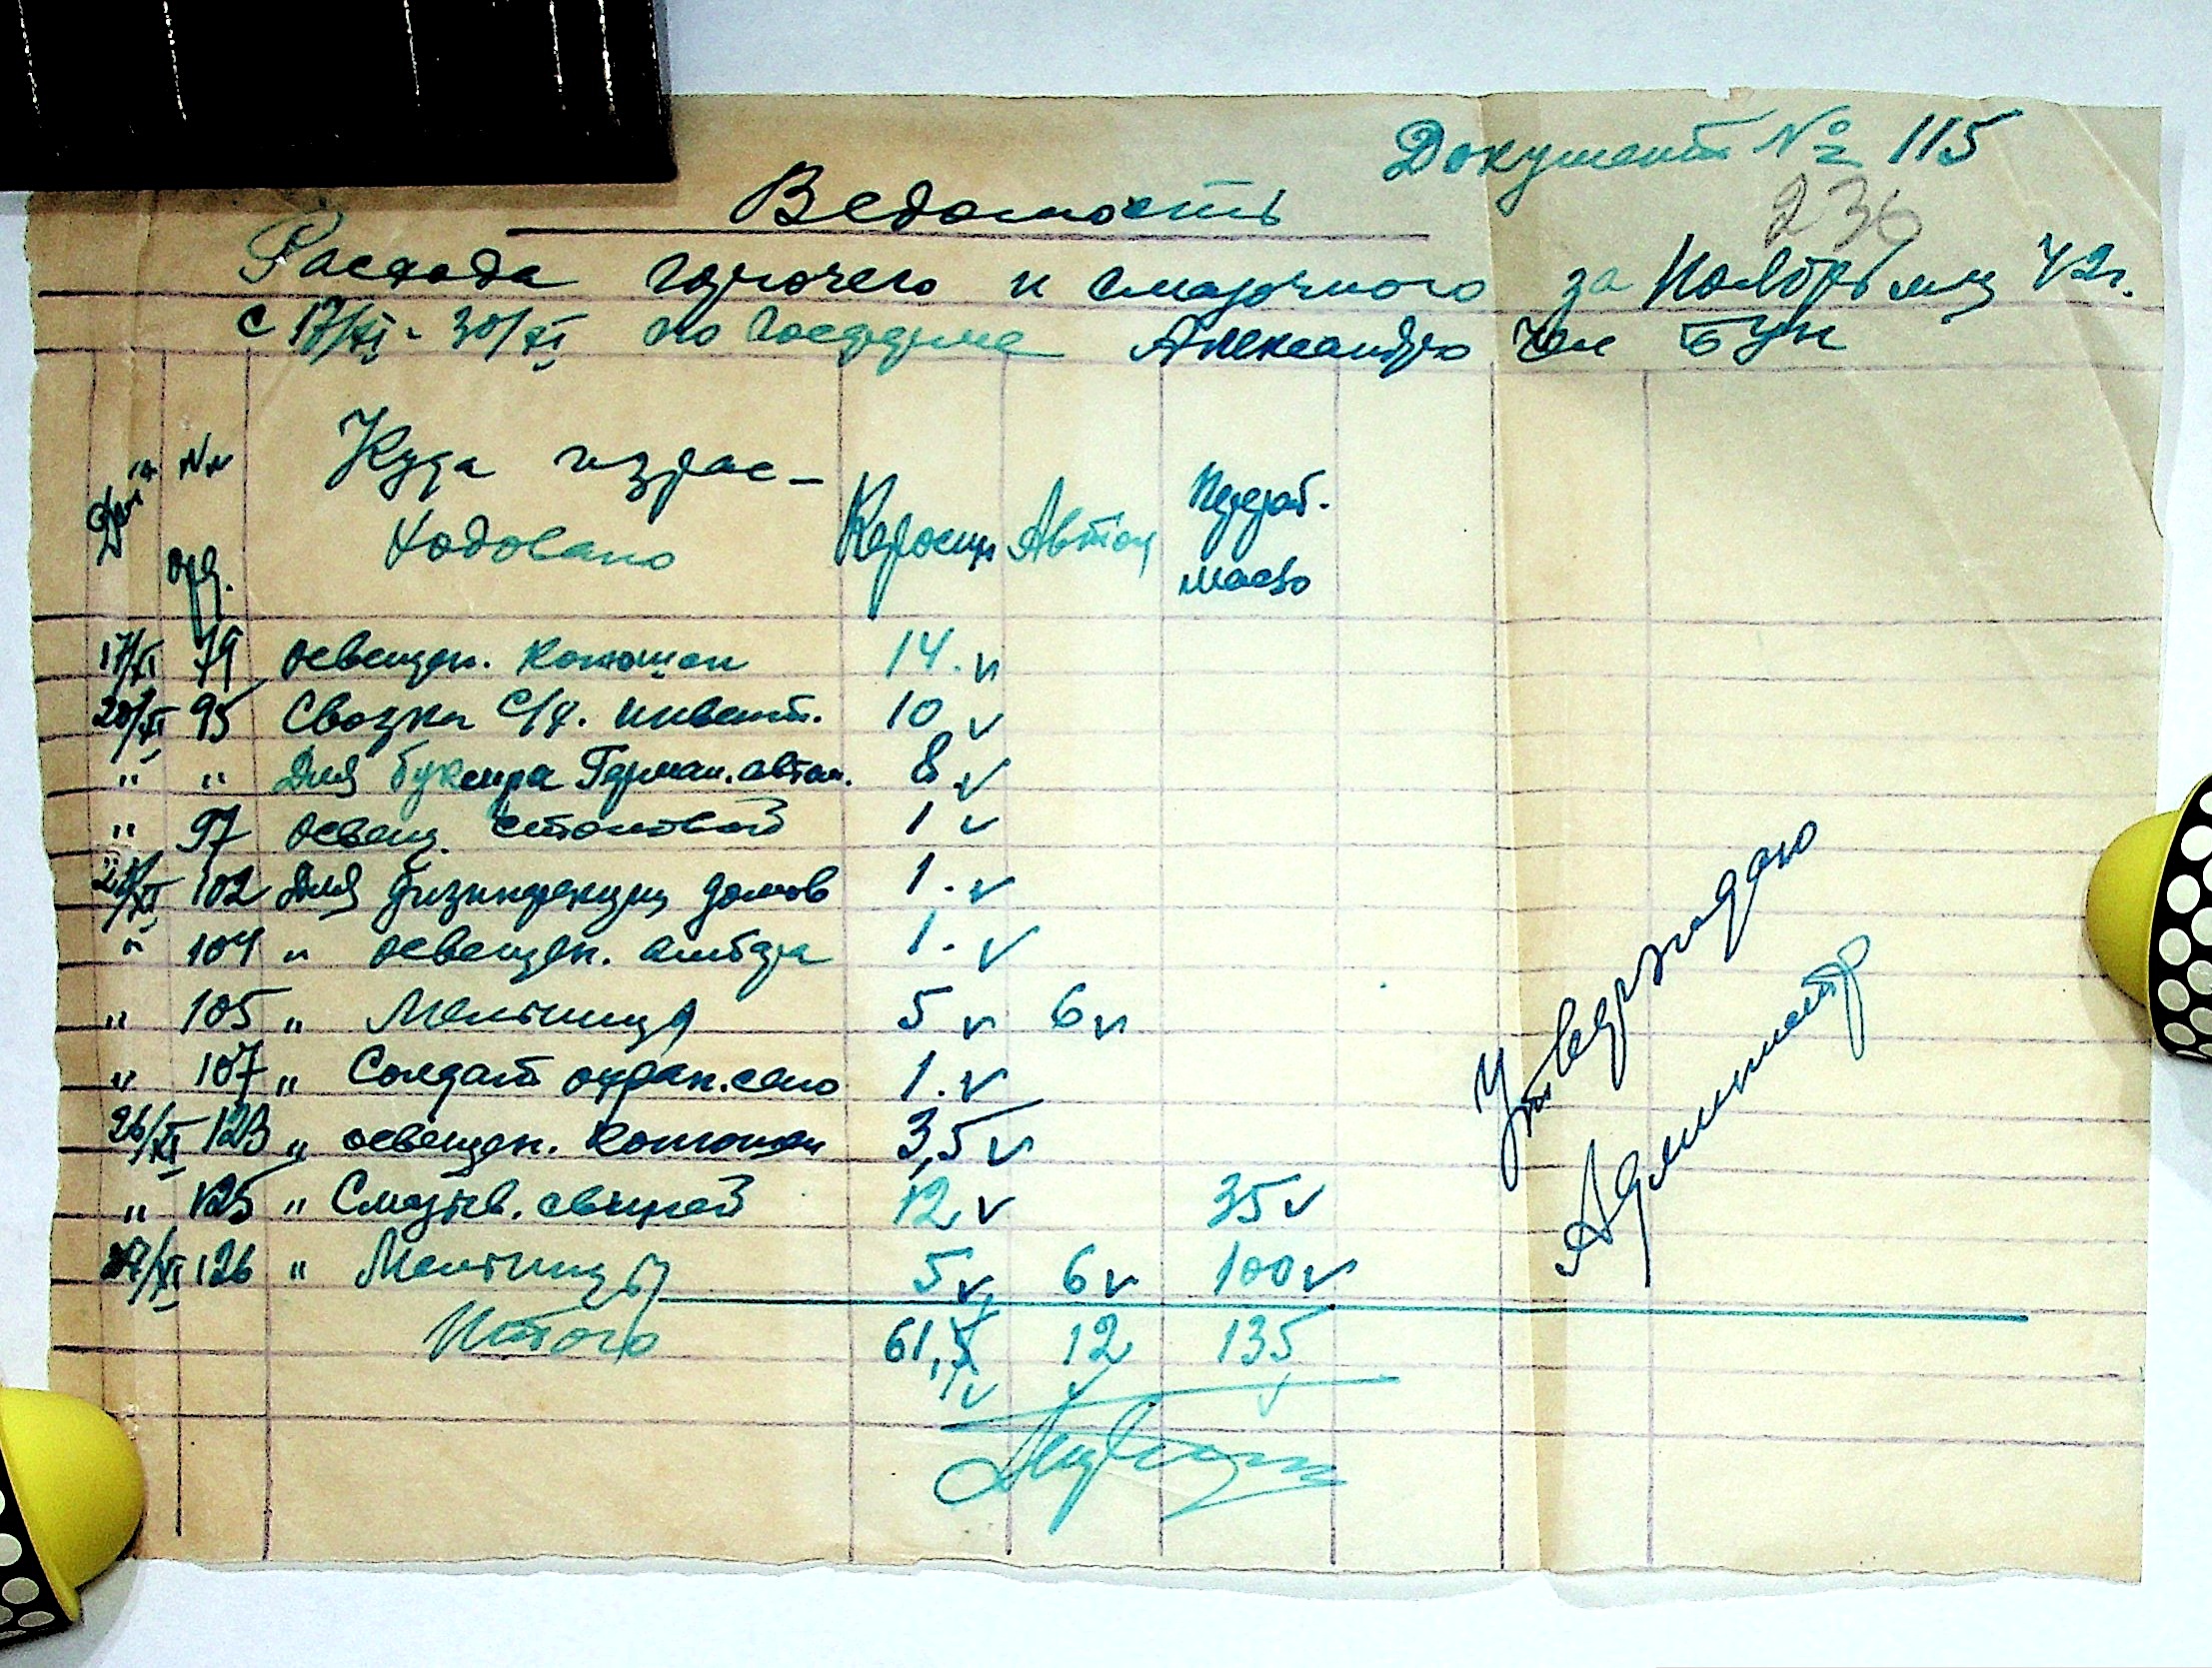 Документ № 115
236
Ведомость
Расхода горючего и смазочного за Ноябрь м-ц 42г.
с 17/XI - 30/XI по Госферме Александро
Дата № № орд. Куда израс-ходовано Керосин Автол Перераб. масло
17/XI 79 освещен. конюшен 14.
20/XI 95 Свозка с/х. инвент. 10
" " Для буксира Герман. автом. 8
" 97 освещ. столовой 1
102 Для дизинфекции домов 1.
" 104 " освещен. амбара 1.
" 105 " Мельницы 5 6
" 107 " Солдат охран. село 1.
26/XI 123 " освещен. конюшен 3,5
" 125 " Смазыв. свиней 12 35
27/XI 126 " Мельницы 5 6 100
Итого 61,5 12 135
Утверждаю
Администр